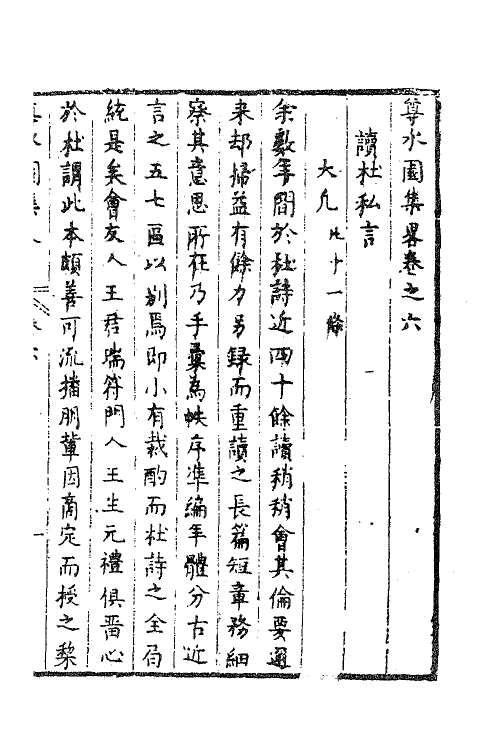 尊水園集畧卷之六
讀杜私言
大凡凡十一條
余數年間於杜詩近四十餘讀稍稍會其倫要邇
来却掃益有餘力另録而重讀之長篇短章務細
察其意思所在乃手彙為帙序準編年體分古近
言之五七區以别焉即小有裁酌而杜詩之全局
統是矣會友人王君瑞符門人王生元禮俱嗇心
於杜謂此本頗善可流播朋軰因商定而授之棃